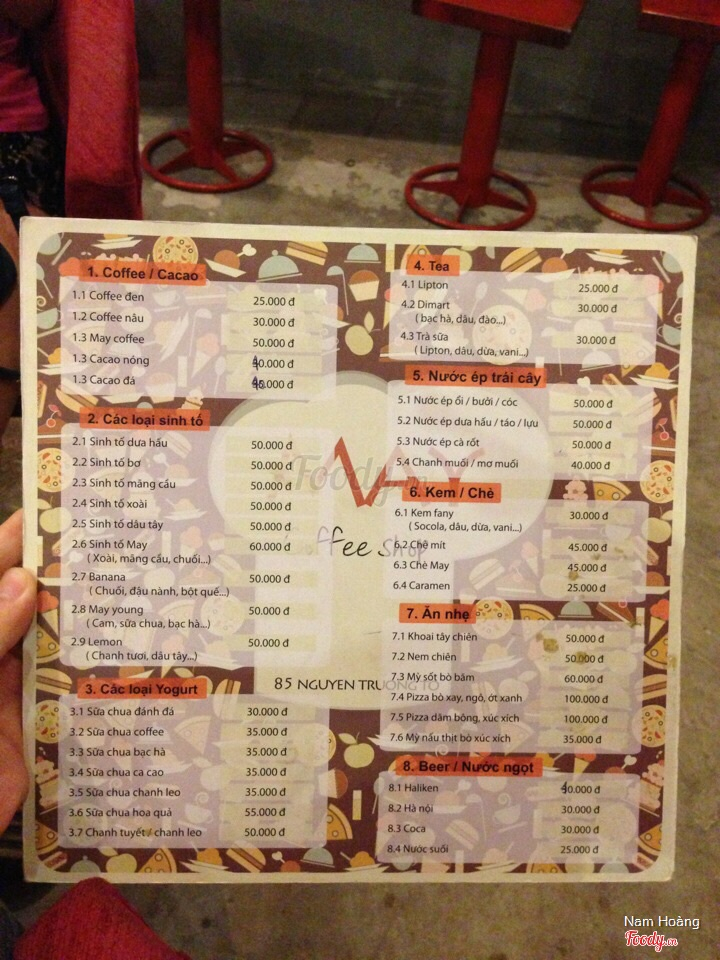 1. Coffee / Cacao
1.1 Coffee đen 25.000 đ
1.2 Coffee nâu 30.000 đ
1.3 May coffee 50.000 đ
1.3 Cacao nóng 40.000 đ
1.3 Cacao đá 45.000 đ
2. Các loại sinh tố
2.1 Sinh tố dưa hấu 50.000 đ
2.2 Sinh tố bơ 50.000 đ
2.3 Sinh tố mãng cầu 50.000 đ
2.4 Sinh tố xoài 50.000 đ
2.5 Sinh tố dâu tây 50.000 đ
2.6 Sinh tố May 60.000 đ
( Xoài, mãng cầu, chuối...)
2.7 Banana 50.000 đ
( Chuối, đậu nành, bột quế...)
2.8 May young 50.000 đ
( Cam, sữa chua, bạc hà...)
2.9 Lemon 50.000 đ
( Chanh tươi, dâu tây...)
3. Các loại Yogurt
3.1 Sữa chua đánh đá 30.000 đ
3.2 Sữa chua coffee 35.000 đ
3.3 Sữa chua bạc hà 35.000 đ
3.4 Sữa chua ca cao 35.000 đ
3.5 Sữa chua chanh leo 35.000 đ
3.6 Sữa chua hoa quả 55.000 đ
3.7 Chanh tuyết / chanh leo 50.000 đ
4. Tea
4.1 Lipton 25.000 đ
4.2 Dimart 30.000 đ
( bạc hà, dâu, đào...)
4.3 Trà sữa 30.000 đ
( Lipton, dâu, dừa, vani...)
5. Nước ép trái cây
5.1 Nước ép ổi / bưởi / cóc 50.000 đ
5.2 Nước ép dưa hấu / táo / lựu 50.000 đ
5.3 Nước ép cà rốt 50.000 đ
5.4 Chanh muối / mơ muối 40.000 đ
6. Kem / Chè
6.1 Kem fany 30.000 đ
( Socola, dâu, dừa, vani...)
6.2 Chè mít 45.000 đ
6.3 Chè May 45.000 đ
6.4 Caramen 25.000 đ
7. Ăn nhẹ
7.1 Khoai tây chiên 50.000 đ
7.2 Nem chiên 50.000 đ
7.3 Mỳ sốt bò băm 60.000 đ
7.4 Pizza bò xay, ngô, ớt xanh 100.000 đ
7.5 Pizza dăm bông, xúc xích 100.000 đ
7.6 Mỳ nấu thịt bò xúc xích 35.000 đ
8. Beer / Nước ngọt
8.1 Haliken 40.000 đ
8.2 Hà nội 30.000 đ
8.3 Coca 30.000 đ
8.4 Nước suối 25.000 đ
Foody.vn
ffee Shop
85 NGUYEN TRUONG TO
Nam Hoàng
Foody.vn